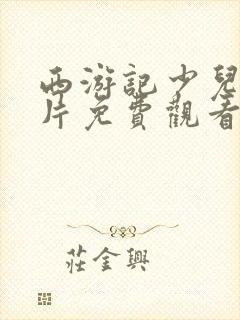 西游記少兒
片免費觀看
莊金興